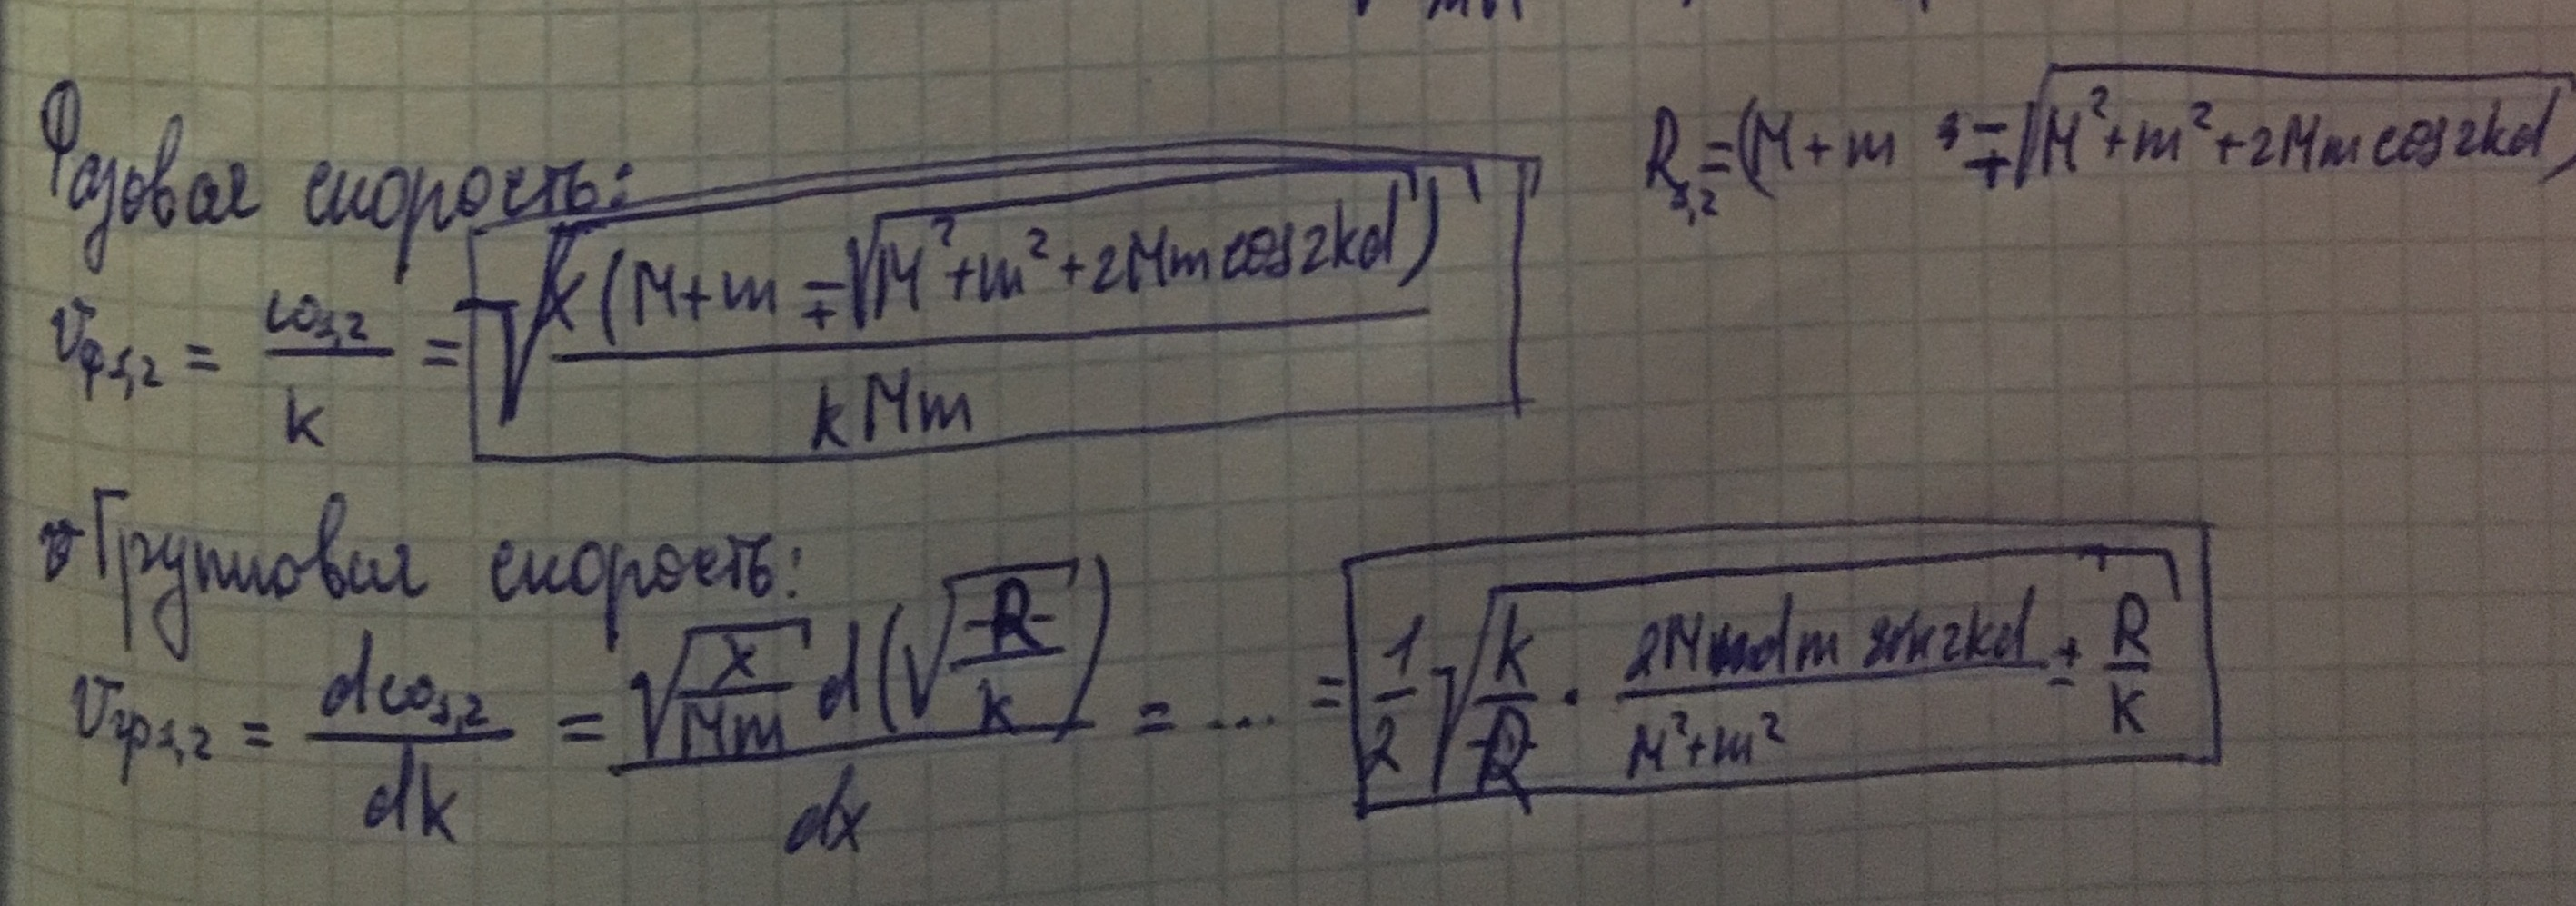 Фазовая скорость:
R₁,₂ = (M + m ∓ √(M² + m² + 2Mm cos2kd))
vф₁,₂ = ω₁,₂ / k = √(χ(M + m ∓ √(M² + m² + 2Mm cos2kd)) / kMm)
Групповая скорость:
vгр₁,₂ = dω₁,₂ / dk = √(χ / Mm) d(√(R / k)) / dx = ... = 1/2 √(k/R · 2Mdm sin2kd / M² + m² ± R/k)